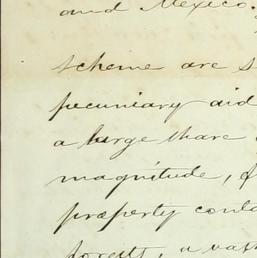 and Mexico.
scheme are s
pecuniary aid
a large share
magnitude, f
property conta
forests, a vast